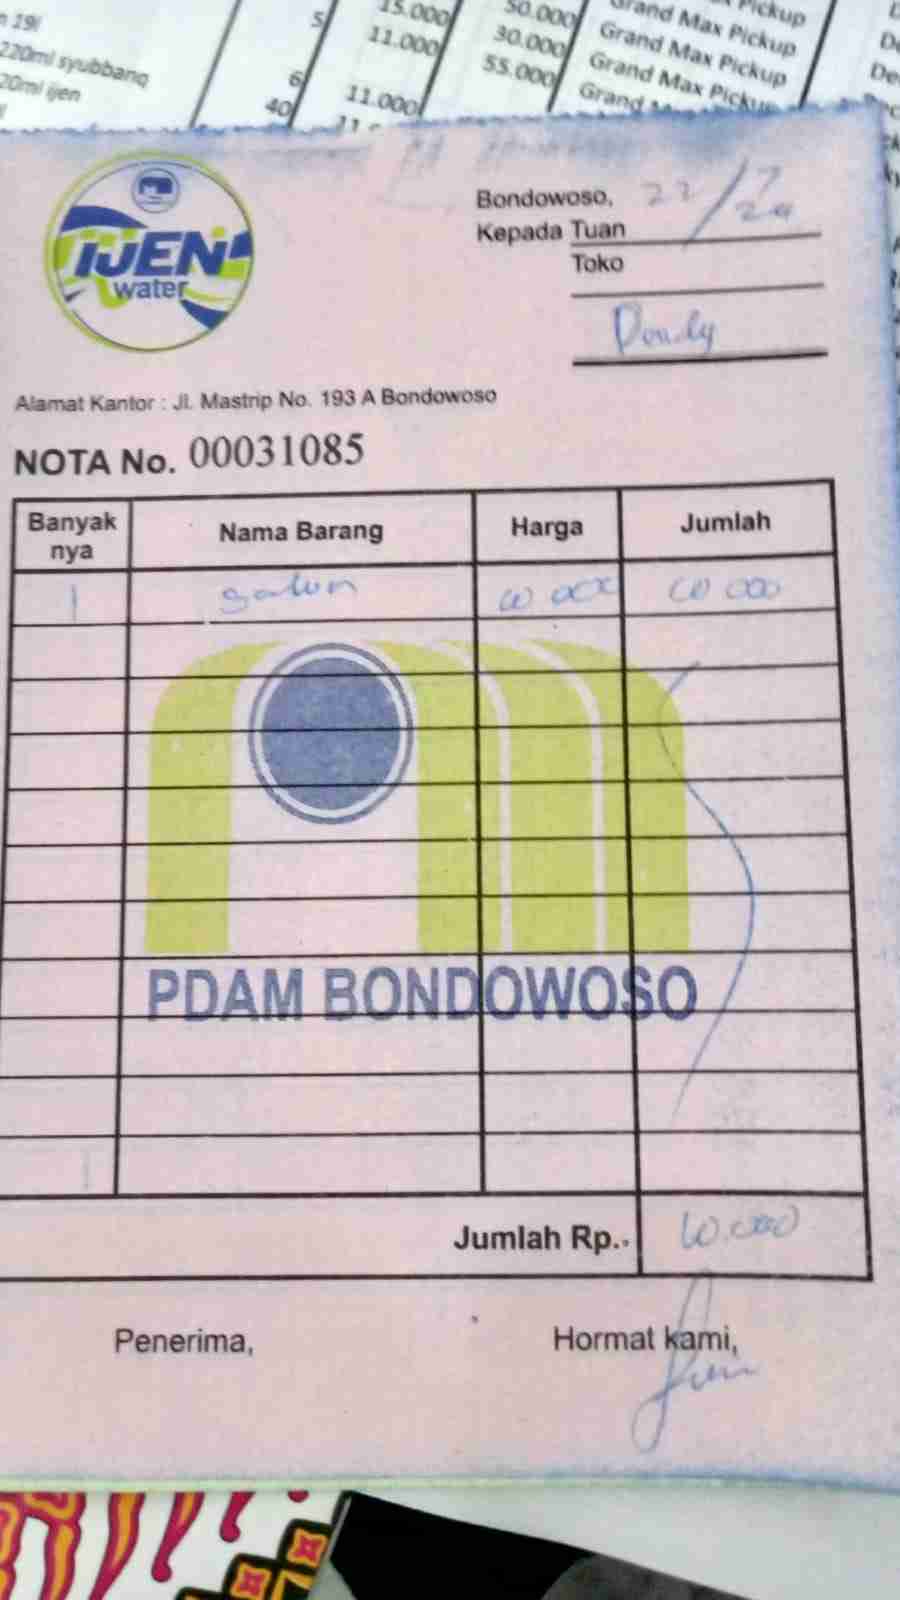 19l 5 15.000 50.000 Grand Max Pickup
220ml syubbanq 11.000 30.000 Grand Max Pickup
20ml ijen 6 55.000 Grand Max Pickup
40 11.000 Grand Max Pickup
IJEN
water
Bondowoso, 22/7 24
Kepada Tuan
Toko
Dondy
Alamat Kantor : Jl. Mastrip No. 193 A Bondowoso
NOTA No. 00031085
Banyak nya Nama Barang Harga Jumlah
1 galon 10 000 10 000
PDAM BONDOWOSO
Jumlah Rp. 10.000
Penerima, Hormat kami,